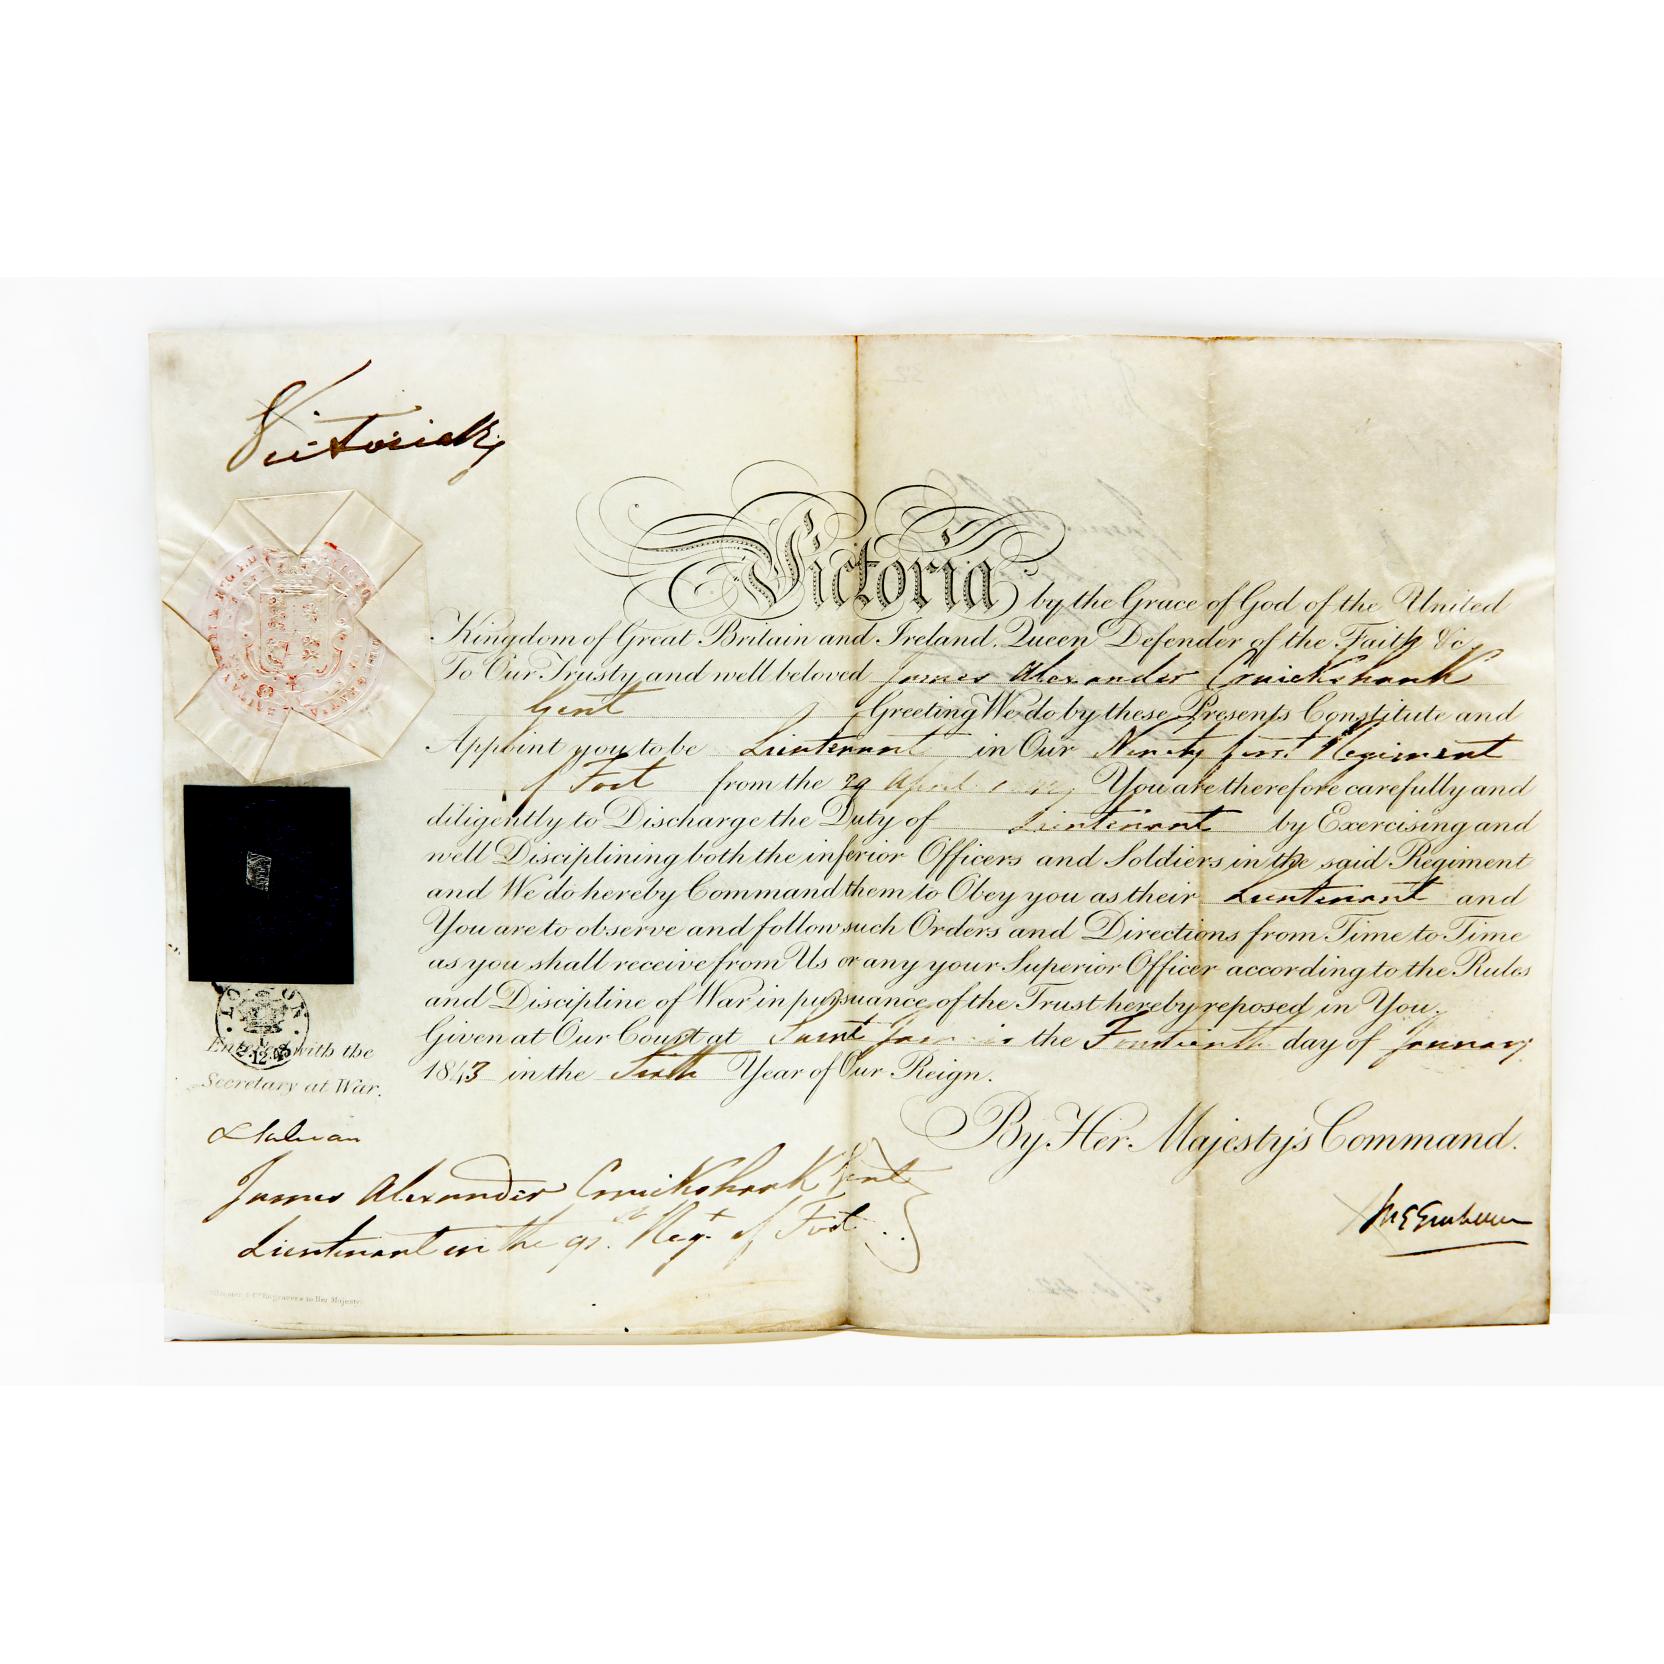 Victoria R
Victoria by the Grace of God of the United
Kingdom of Great Britain and Ireland, Queen Defender of the Faith &c.
To Our Trusty and well beloved James Alexander Cruickshank
Gent Greeting We do by these Presents Constitute and
Appoint you to be Lieutenant in Our Ninety first Regiment
of Foot from the 29 April You are therefore carefully and
diligently to Discharge the Duty of Lieutenant by Exercising and
well Disciplining both the inferior Officers and Soldiers in the said Regiment
and We do hereby Command them to Obey you as their Lieutenant and
You are to observe and follow such Orders and Directions from Time to Time
as you shall receive from Us or any your Superior Officer according to the Rules
and Discipline of War in pursuance of the Trust hereby reposed in You.
Given at Our Court at Saint James's the day of January
1843 in the Sixth Year of Our Reign.
By Her Majesty's Command.
Entered with the
Secretary at War.
James Alexander Cruickshank Gent
Lieutenant in the 91st Regt of Foot
& Co Engravers to Her Majesty